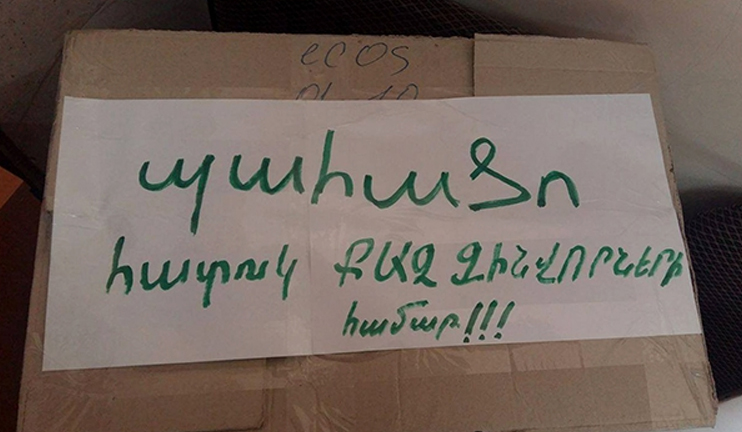 ecos
պահածո
հատուկ ՔԱՋ ԶԻՆՎՈՐՆԵՐԻ
համար!!!